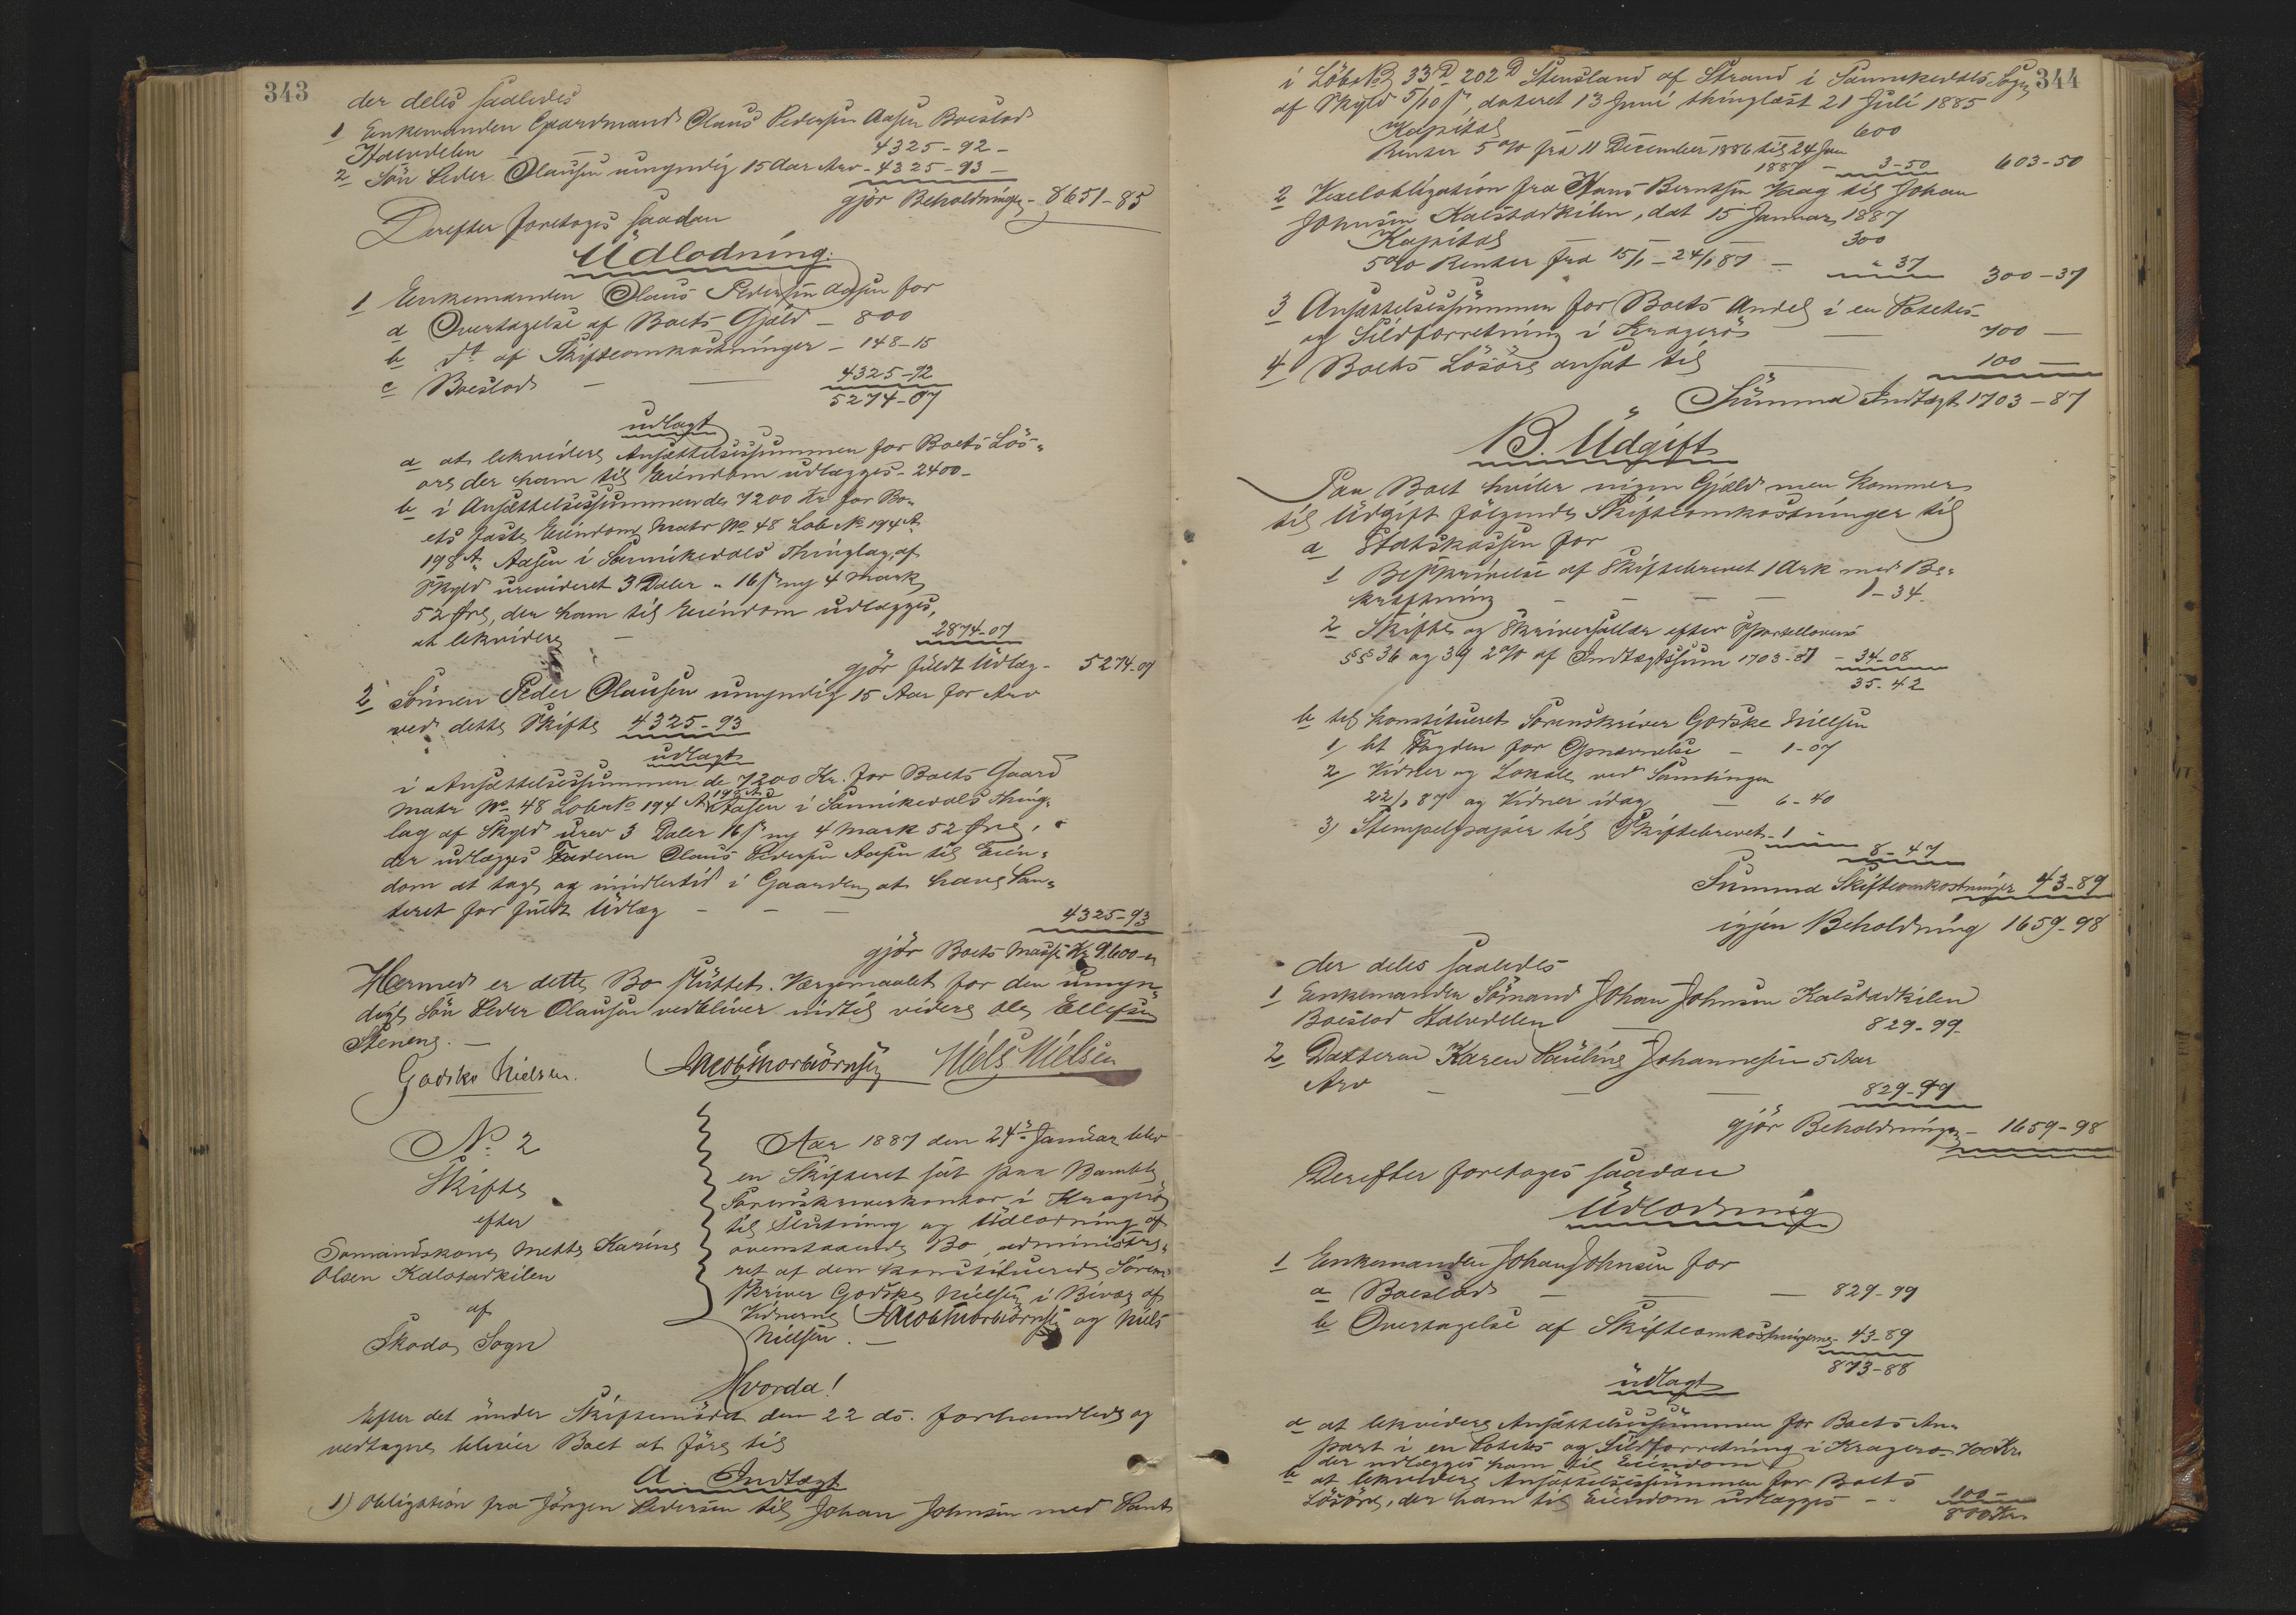 343
der deles saaledes
1 Enkemanden Gaardmand Olaus Pedersen Aasen Boeslod
Halvdelen 4325-92-
2 Søn Peder Olausen umyndig 15 Aar Arv - 4325-93-
gjør Beholdningen - 8651-85
Derefter foretoges saadan
Udlodning:
1 Enkemanden Olaus Pedersen Aasen for
a Overtagelse af Boets Gjæld - 800
b do af Skifteomkostninger - 148-15
c Boeslod - 4325-92
5274-07
udlagt
a at lekvidere Ansættelsessummen for Boets Løs-
øre der ham til Eiendom udlægges - 2400-
b i Ansættelsessummen de 7200 Kr for Bo-
ets faste Eiendom Matr No 48 Løb No 194 A
198 A Aasen i Sannikedals Thinglag af
Skyld urevideret 3 Daler " 16 s ny 4 Mark
52 Øre, der ham til Eiendom udlægges,
at lekvidere - 2874-07
gjør fuldt Udlæg - 5274-07
2 Sønnen Peder Olausen umyndig 15 Aar for Arv
ved dette Skifte 4325-93
udlagt
i Ansættelsessummen de 7200 Kr. for Boets Gaard
198 A
Matr No 48 Løbe No 194 A Aasen i Sannikedals Thing-
lag af Skyld urev 3 Daler 16 s ny 4 Mark 52 Øre,
der udlægges Faderen Olaus Pedersen Aasen til Eien-
dom at tage og imidlertid i Gaarden at have Pan-
teret for fuldt Udlæg - - - 4325-93
gjør Boets Masse Kr 9.600-"
Hermed er dette Bo sluttet. Værgemaalet for den umyn-
dige Søn Peder Olausen vedbliver indtil videre Ole Ellefsen
Stenene. -
Godske Nielsen. Jacob Thorbiørnsen Niels Nielsen
No 2
Skifte
efter
Sømandskone Mette Karine
Olsen Kalstadkilen
af
Skadø Sogn
Aar 1887 den 24de Januar blev
en Skifteret sat paa Bamble
Sorenskriverkontor i Kragerø
til Slutning og Udlodning af
ovenstaaende Bo, administre-
ret af den konstituerede Soren-
skriver Godske Nielsen i Bivær af
Vidnerne Jacob Thorbiørnsen og Niels
Nielsen. -
Hvorda!
Efter det under Skiftemødet den 22 ds. forhandlede og
vedtagne bliver Boet at føre til
A. Indtægt
1) Obligation fra Jørgen Pedersen til Johan Johnsen med Pant
344
i Løb No 33 D 202 D Stensland af Strand i Sannikedals Sogn
af Skyld 5/10 s, dateret 13 Juni thinglæst 21 Juli 1885
Kapital 600
Renter 5 % fra 11 December 1886 til 24 Jan
1887 - 3-50 603-50
2 Vexelobligation fra Hans Berntsen Krag til Johan
Johnsen Kalstadkilen, dat 15 Januar 1887
Kapital 300
5 % Renter fra 15/1 - 24/1 87 - " 37 300-37
3 Ansættelsessummen for Boets Andel i en Potetes-
og Sildforretning i Kragerø 700 -
4 Boets Løsøre ansat til 100 -
Summa Indtægt 1703-87
B. Udgift
Paa Boet hviler ingen Gjæld men kommer
til Udgift følgende Skifteomkostninger til
a Statskassen for
1 Beskrivelse af Skiftebrevet 1 Ark med Be-
kræftning - - - - 1-34
2 Skifte og Skriversallær efter Sportellovens
§§ 36 og 39 2 % af Indtægtssum 1703-87 - 34-08
35-42
b til konstitueret Sorenskriver Godske Nielsen
1) bt Fogden for Opnævnelse - 1-07
2) Vidner og Lokale ved Samlingen
22/1 87 og Vidner idag - 6-40
3) Stempelpapir til Skiftebrevet - 1 "
8-47
Summa Skifteomkostninger 43-89
igjen Beholdning 1659-98
der deles saaledes
1 Enkemanden Sømand Johan Johnsen Kalstadkilen
Boeslod Halvdelen - 829-99-
2 Datteren Karen Pauline Johannesen 5 Aar
Arv - - - 829-99
gjør Beholdningen - 1659-98
Derefter foretoges saadan
Udlodning
1 Enkemanden Johan Johnsen for
a Boeslod - - - 829-99
b Overtagelse af Skifteomkostningerne - 43-89
873-88
udlagt
a at lekvidere Ansættelsessummen for Boets An-
part i en Potetes og Sildforretning i Kragerø - 700 Kr.
der udlægges ham til Eiendom
b at lekvidere Ansættelsessummen for Boets
Løsøre, der ham til Eiendom udlægges - - 100 -
800 Kr.